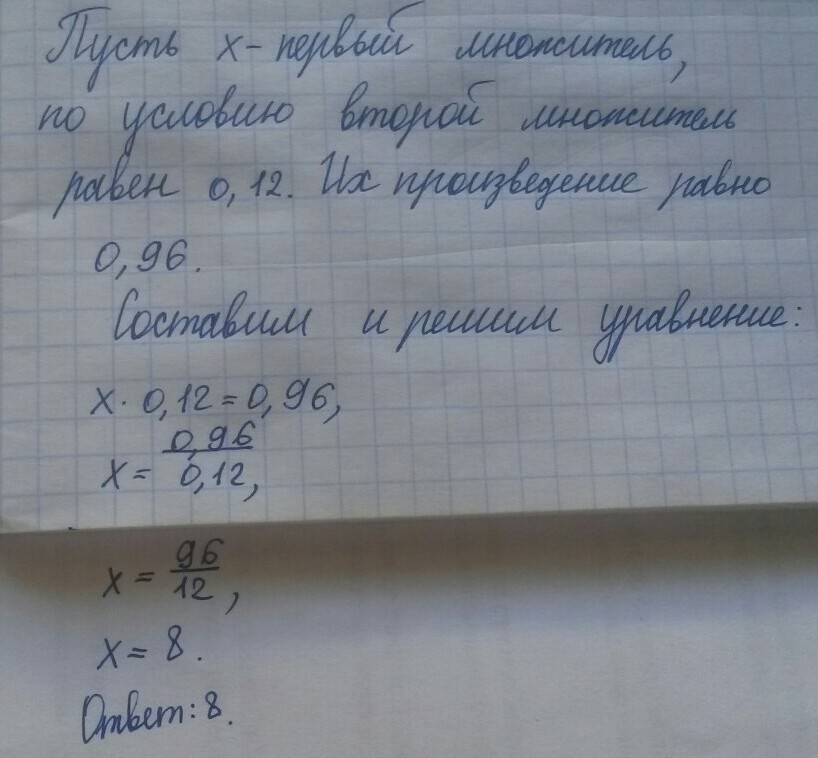 Пусть x - первый множитель,
по условию второй множитель
равен 0,12. Их произведение равно
0,96.
Составим и решим уравнение:
x · 0,12 = 0,96,
x = 0,96/0,12,
x = 96/12,
x = 8.
Ответ: 8.